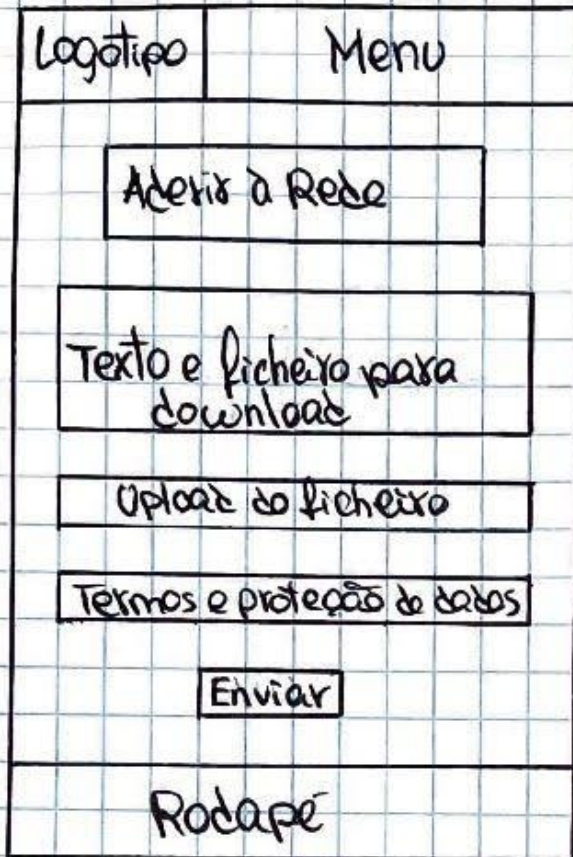 Logótipo
Menu
Aderir à Rede
Texto e ficheiro para
download
Upload do ficheiro
Termos e proteção de dados
Enviar
Rodapé